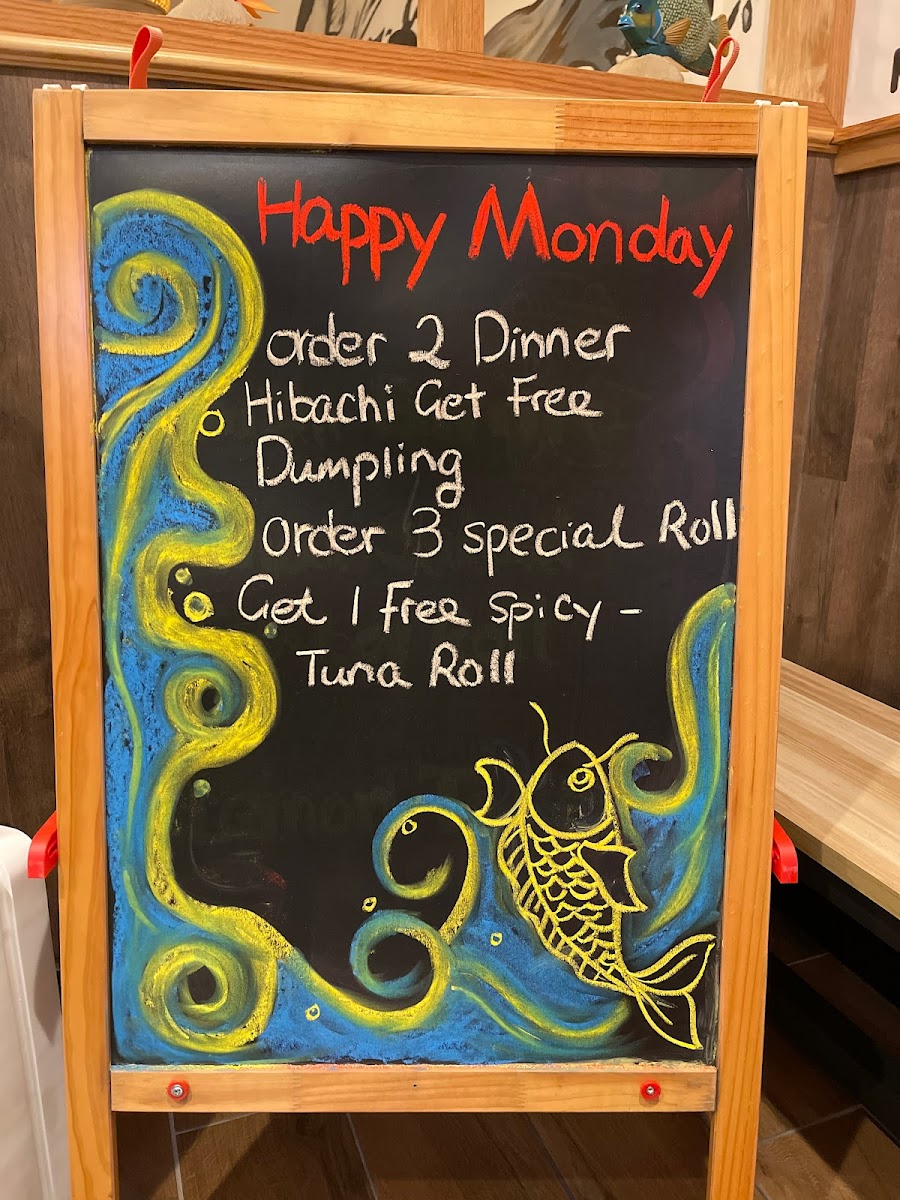 Happy Monday
order 2 Dinner
Hibachi Get Free
Dumpling
order 3 special Roll
Get 1 Free spicy -
Tuna Roll